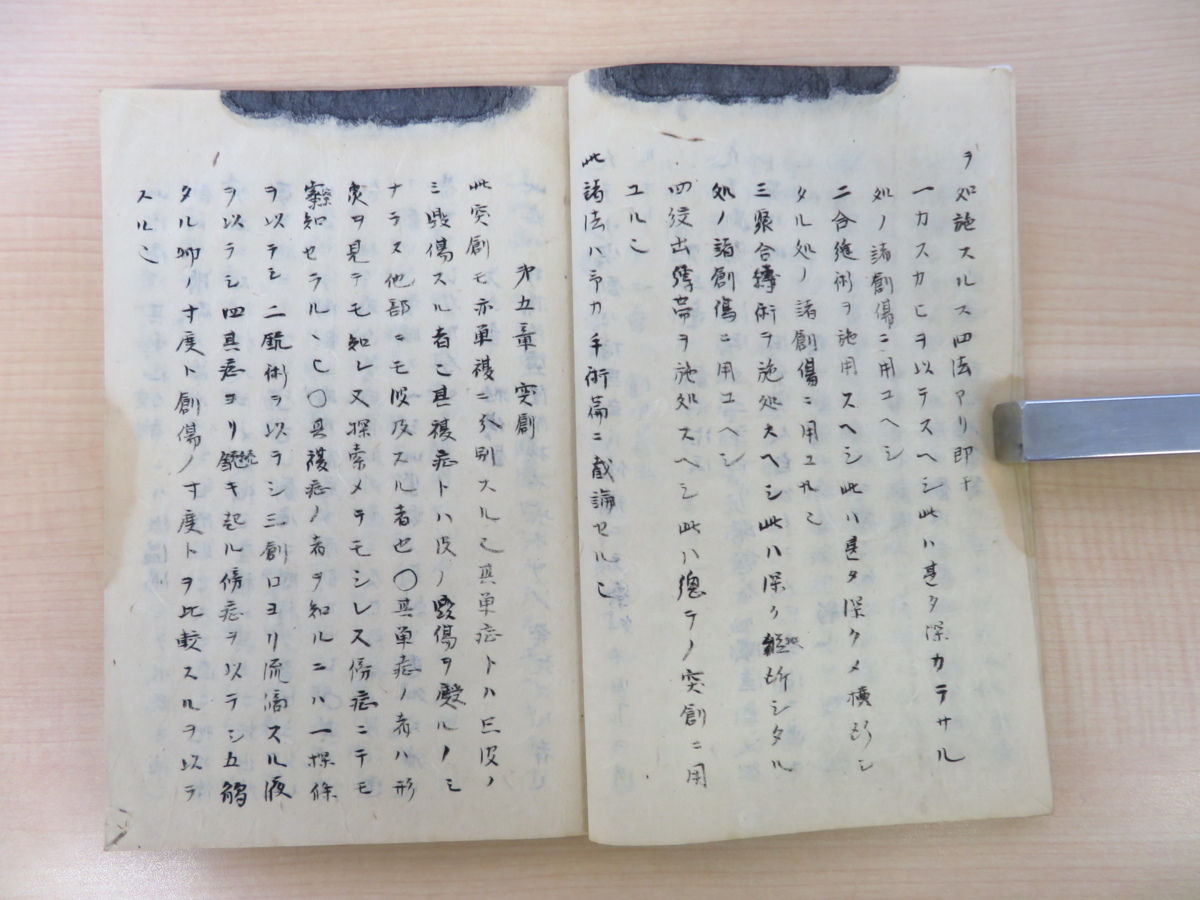 ヲ処施スルス四法アリ即チ
一カスカヒヲ以テスヘシ此ハ甚タ深カラサル
処ノ諸創傷ニ用ユヘシ
二合縫術ヲ施用スヘシ此ハ甚タ深クメ横断シ
タル処ノ諸創傷ニ用ユルヿ
三聚合縛術ヲ施処スヘシ此ハ深ク断シタル
処ノ諸創傷ニ用ユヘシ
四絞出縛帯ヲ施処スヘシ此ハ總テノ突創ニ用
ユルヿ
此諸法ハ予カ手術篇ニ載論セルヿ
第五章 突創
此突創モ亦単複ニ分別スルヿ其単症トハ只皮ノ
ミ毀傷スル者ヿ其複症トハ皮ノ毀傷ヲ ルノミ
ナラス他部ニモ波及スル者也〇其単症ノ者ハ形
突ヲ見テモ知レ又探索メテモシレス傍症ニテモ
察知セラルヽヿ〇其複症ノ者ヲ知ルニハ一探條
ヲ以テシ二 術ヲ以テシ三創口ヨリ流滴スル液
ヲ以テシ四其症ヨリ継キ起ル傍症ヲ以テシ五觸
タル ノ寸度ト創傷ノ寸度トヲ比較スルヲ以テ
スルヿ